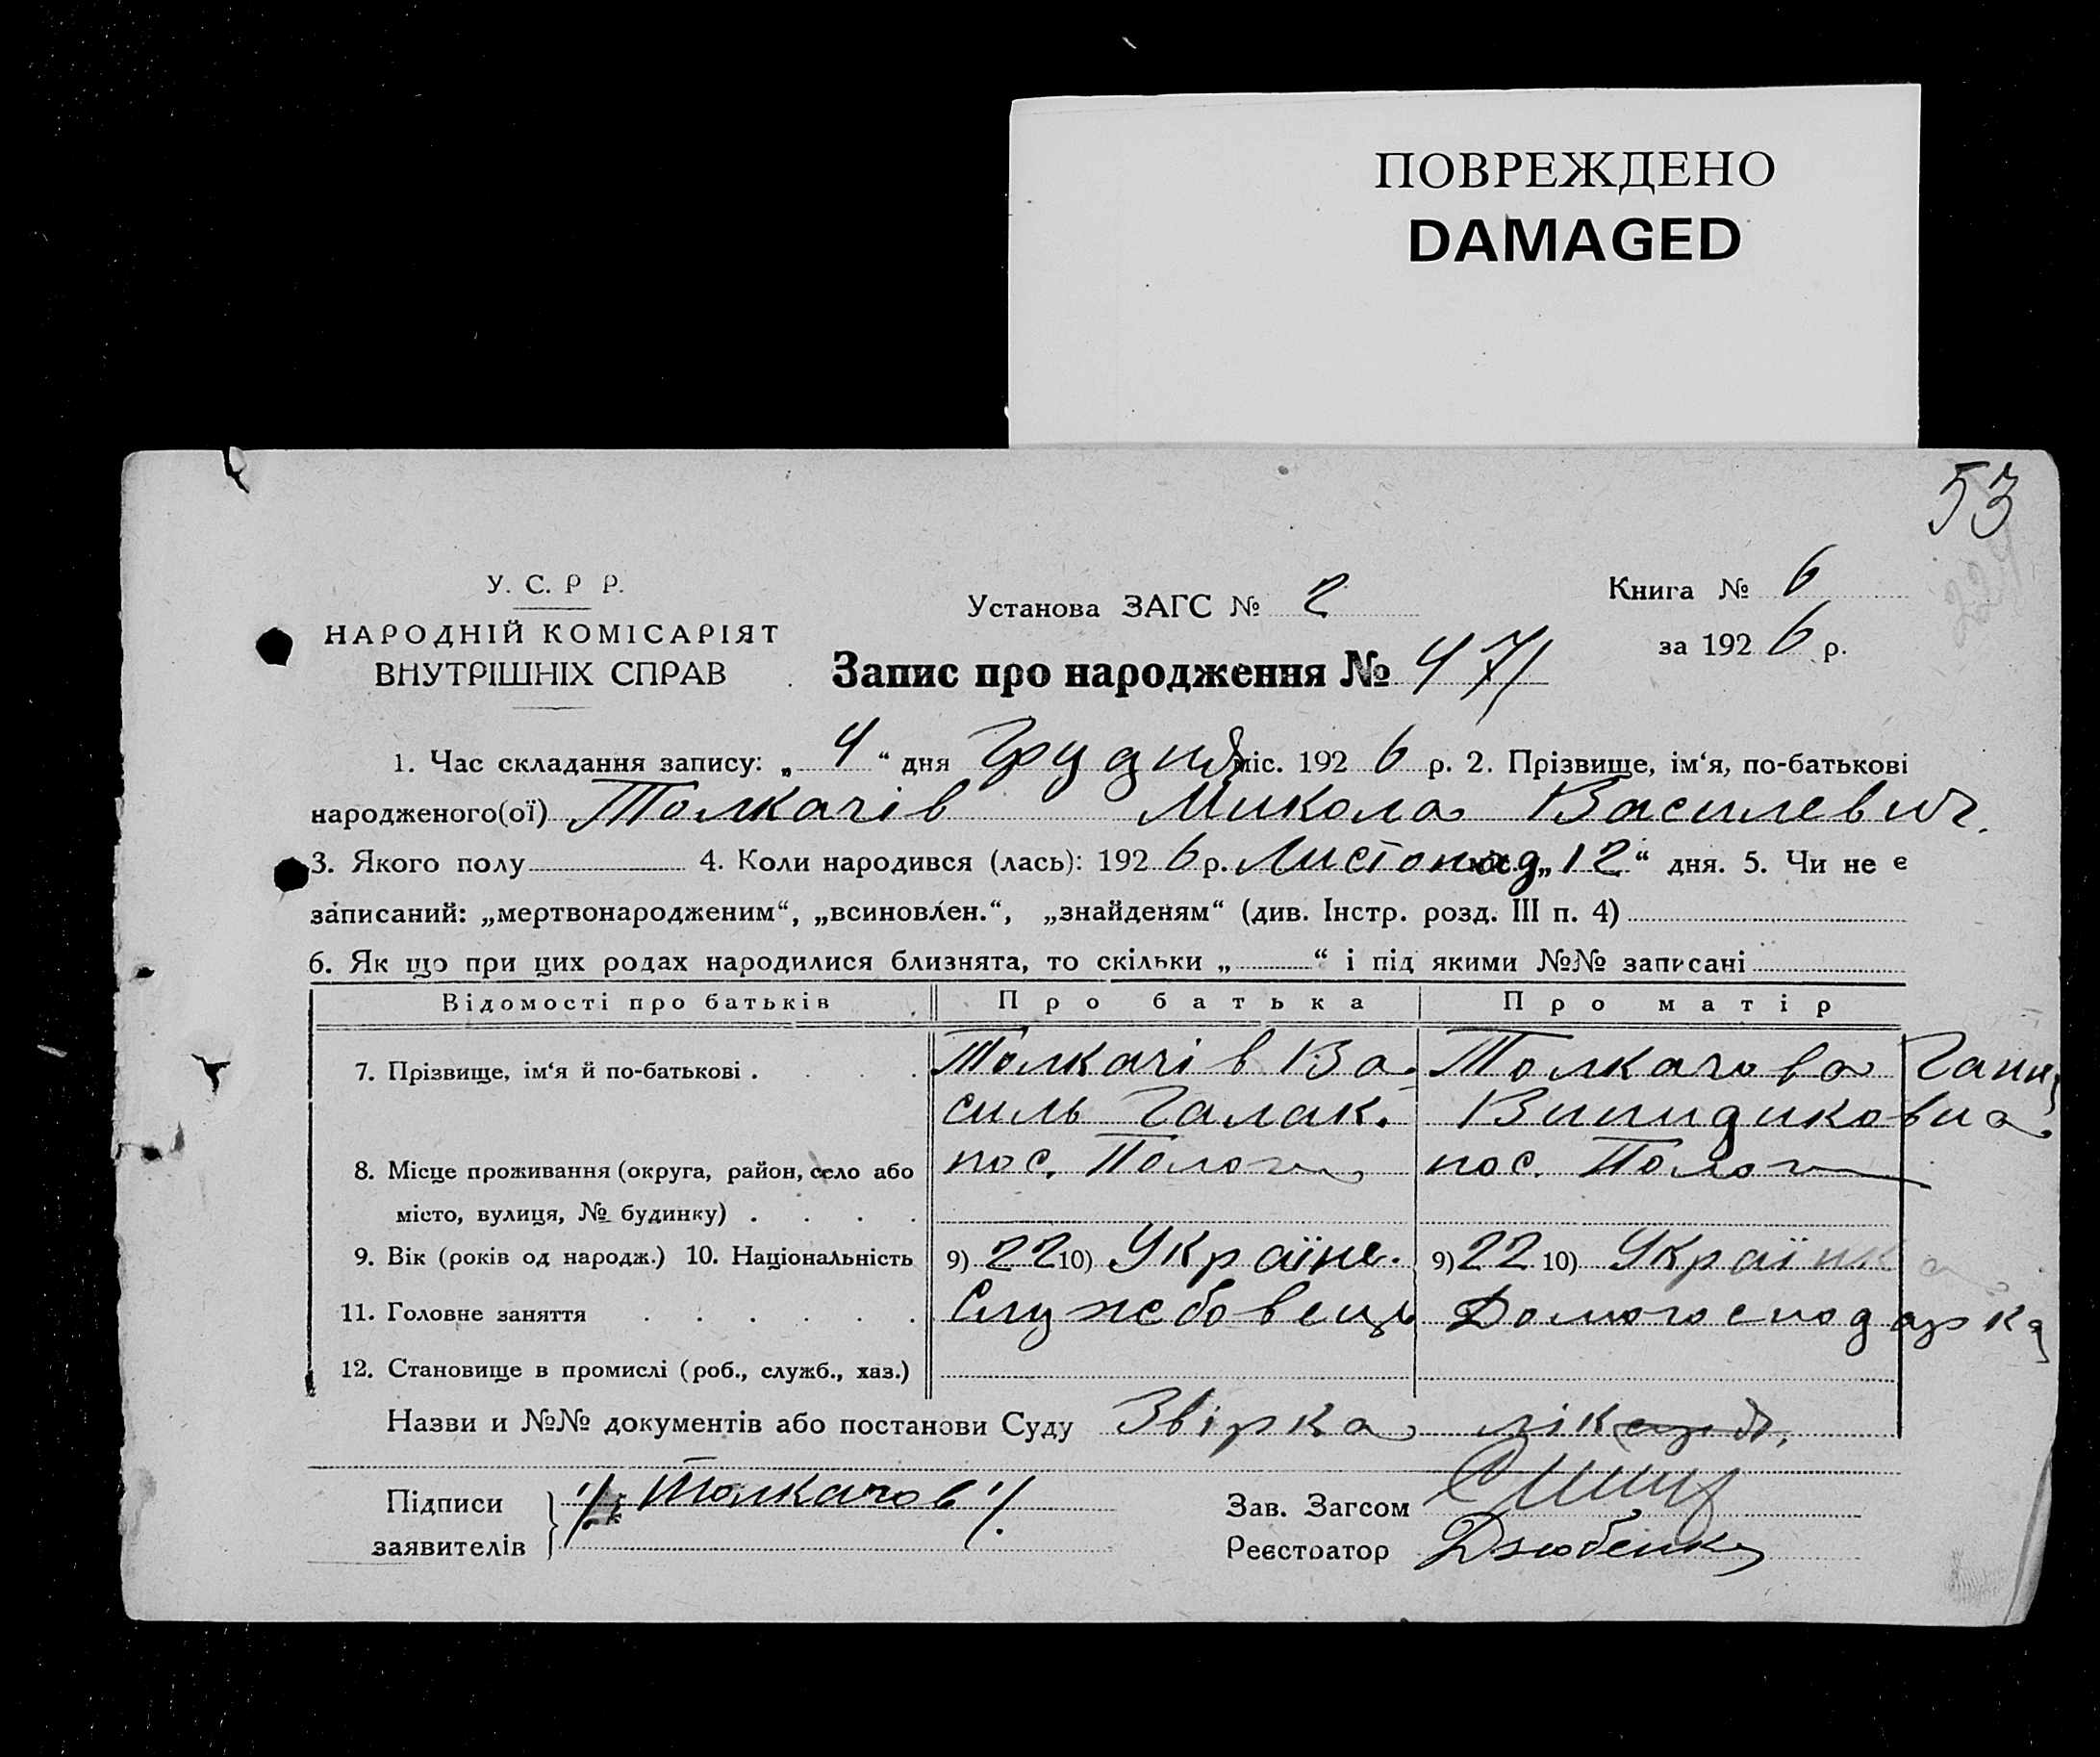 ПОВРЕЖДЕНО
DAMAGED
53
У. С. Р Р.
НАРОДНІЙ КОМІСАРІЯТ
ВНУТРІШНІХ СПРАВ
Установа ЗАГС № 2
Книга № 6
за 1926 р.
Запис про народження № 47
1. Час складання запису: „4“ дня Грудня міс. 1926 р. 2. Прізвище, ім‘я, по-батькові
народженого(ої) Толкачів Микола Василевич.
3. Якого полу 4. Коли народився (лась): 1926 р. Листопад „12“ дня. 5. Чи не є
записаний: „мертвонародженим“, „всиновлен.“, „знайденям“ (див. Інстр. розд. III п. 4)
6. Як що при цих родах народилися близнята, то скільки „ “ і під якими №№ записані
Відомості про батьків Про батька Про матір
7. Прізвище, ім‘я й по-батькові Толкачів Ва- Толкачова Ганн
силь Галак.
8. Місце проживання (округа, район, село або пос. Пологи пос. Пологи
місто, вулиця, № будинку)
9. Вік (років од народж.) 10. Національність 9) 22 10) Українс. 9) 22 10) Українка
11. Головне заняття Службовець Домогосподарка
12. Становище в промислі (роб., служб., хаз.)
Назви и №№ документів або постанови Суду Звірка
Підписи Толкачов Зав. Загсом
заявителів Реєстратор Дзюбенко